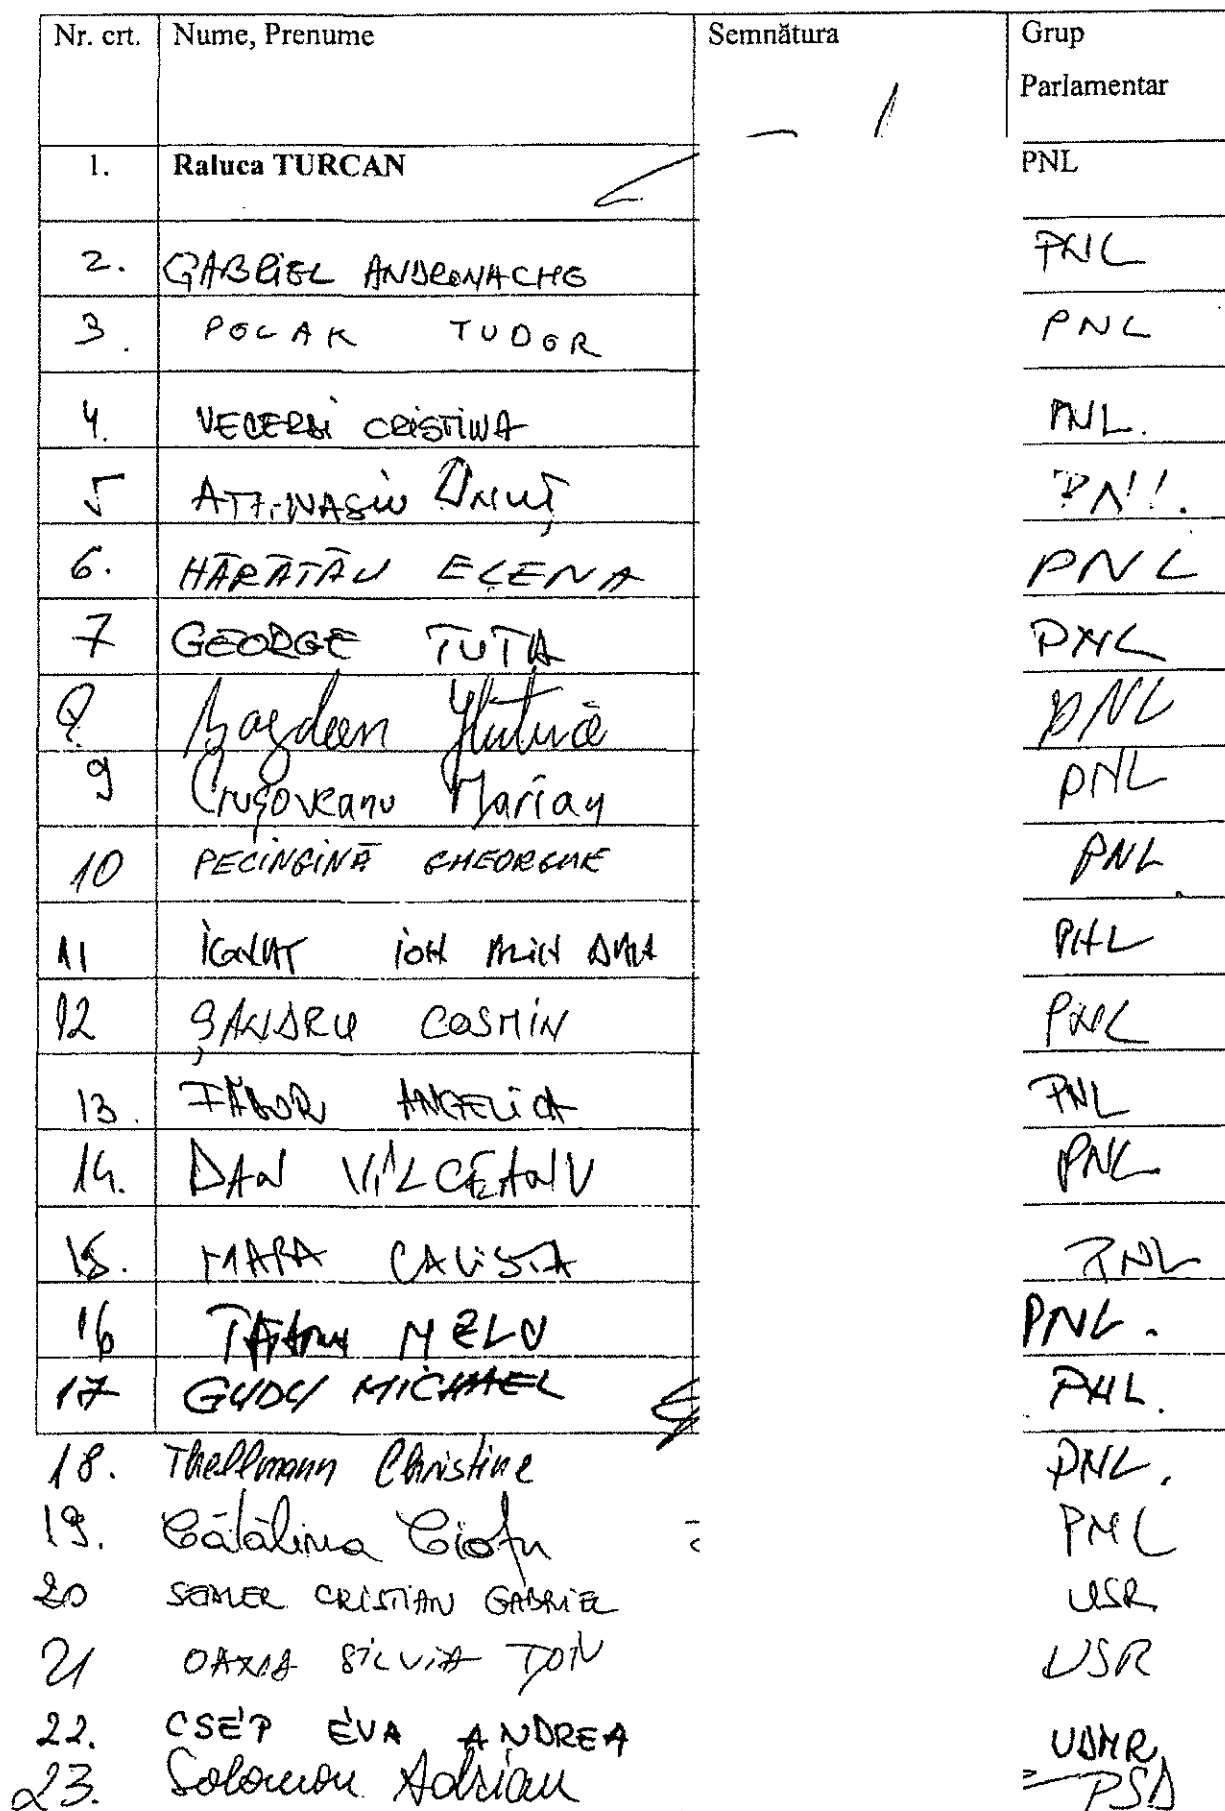 Nr. crt. Nume, Prenume Semnătura Grup
Parlamentar
1. Raluca TURCAN PNL
2. GABRIEL ANDRONACHE PNL
3. POLAK TUDOR PNL
4. VECERDI CRISTINA PNL.
5 ATANASIU IONUȚ
6. HĂRĂTĂU ELENA PNL
7 GEORGE TUTA PNL
8 Bogdan Huțucă PNL
9 Crușoveanu Marian PNL
10 PECINGINĂ GHEORGHE PNL
11 IGNAT ION PNL
12 ȘANDRU COSMIN PNL
13. FĂDOR ANGELICA PNL
14. DAN VÎLCEANU PNL
15. MARA CALISTA PNL
16 TĂTARU NELU PNL.
17 GUDU MICHAEL PNL.
18. Thellmann Christine PNL.
19. Cătălina Ciofu PNL
20 SEIDLER CRISTIAN GABRIEL USR
21 OANA SILVIA ȚOIU USR
22. CSÉP ÉVA ANDREA UDMR
23. Solomon Adrian PSD